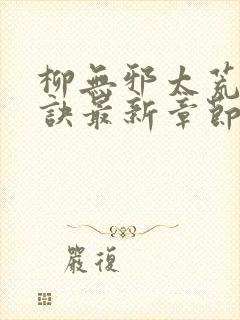 柳無邪太荒
訣最新章節
嚴復